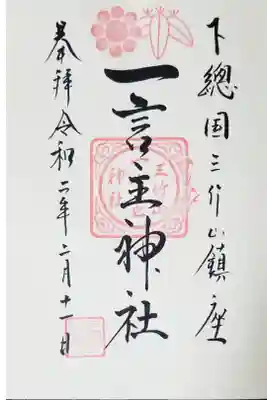 下總国三竹山鎮座
一言主神社
奉拝令和二年二月十一日